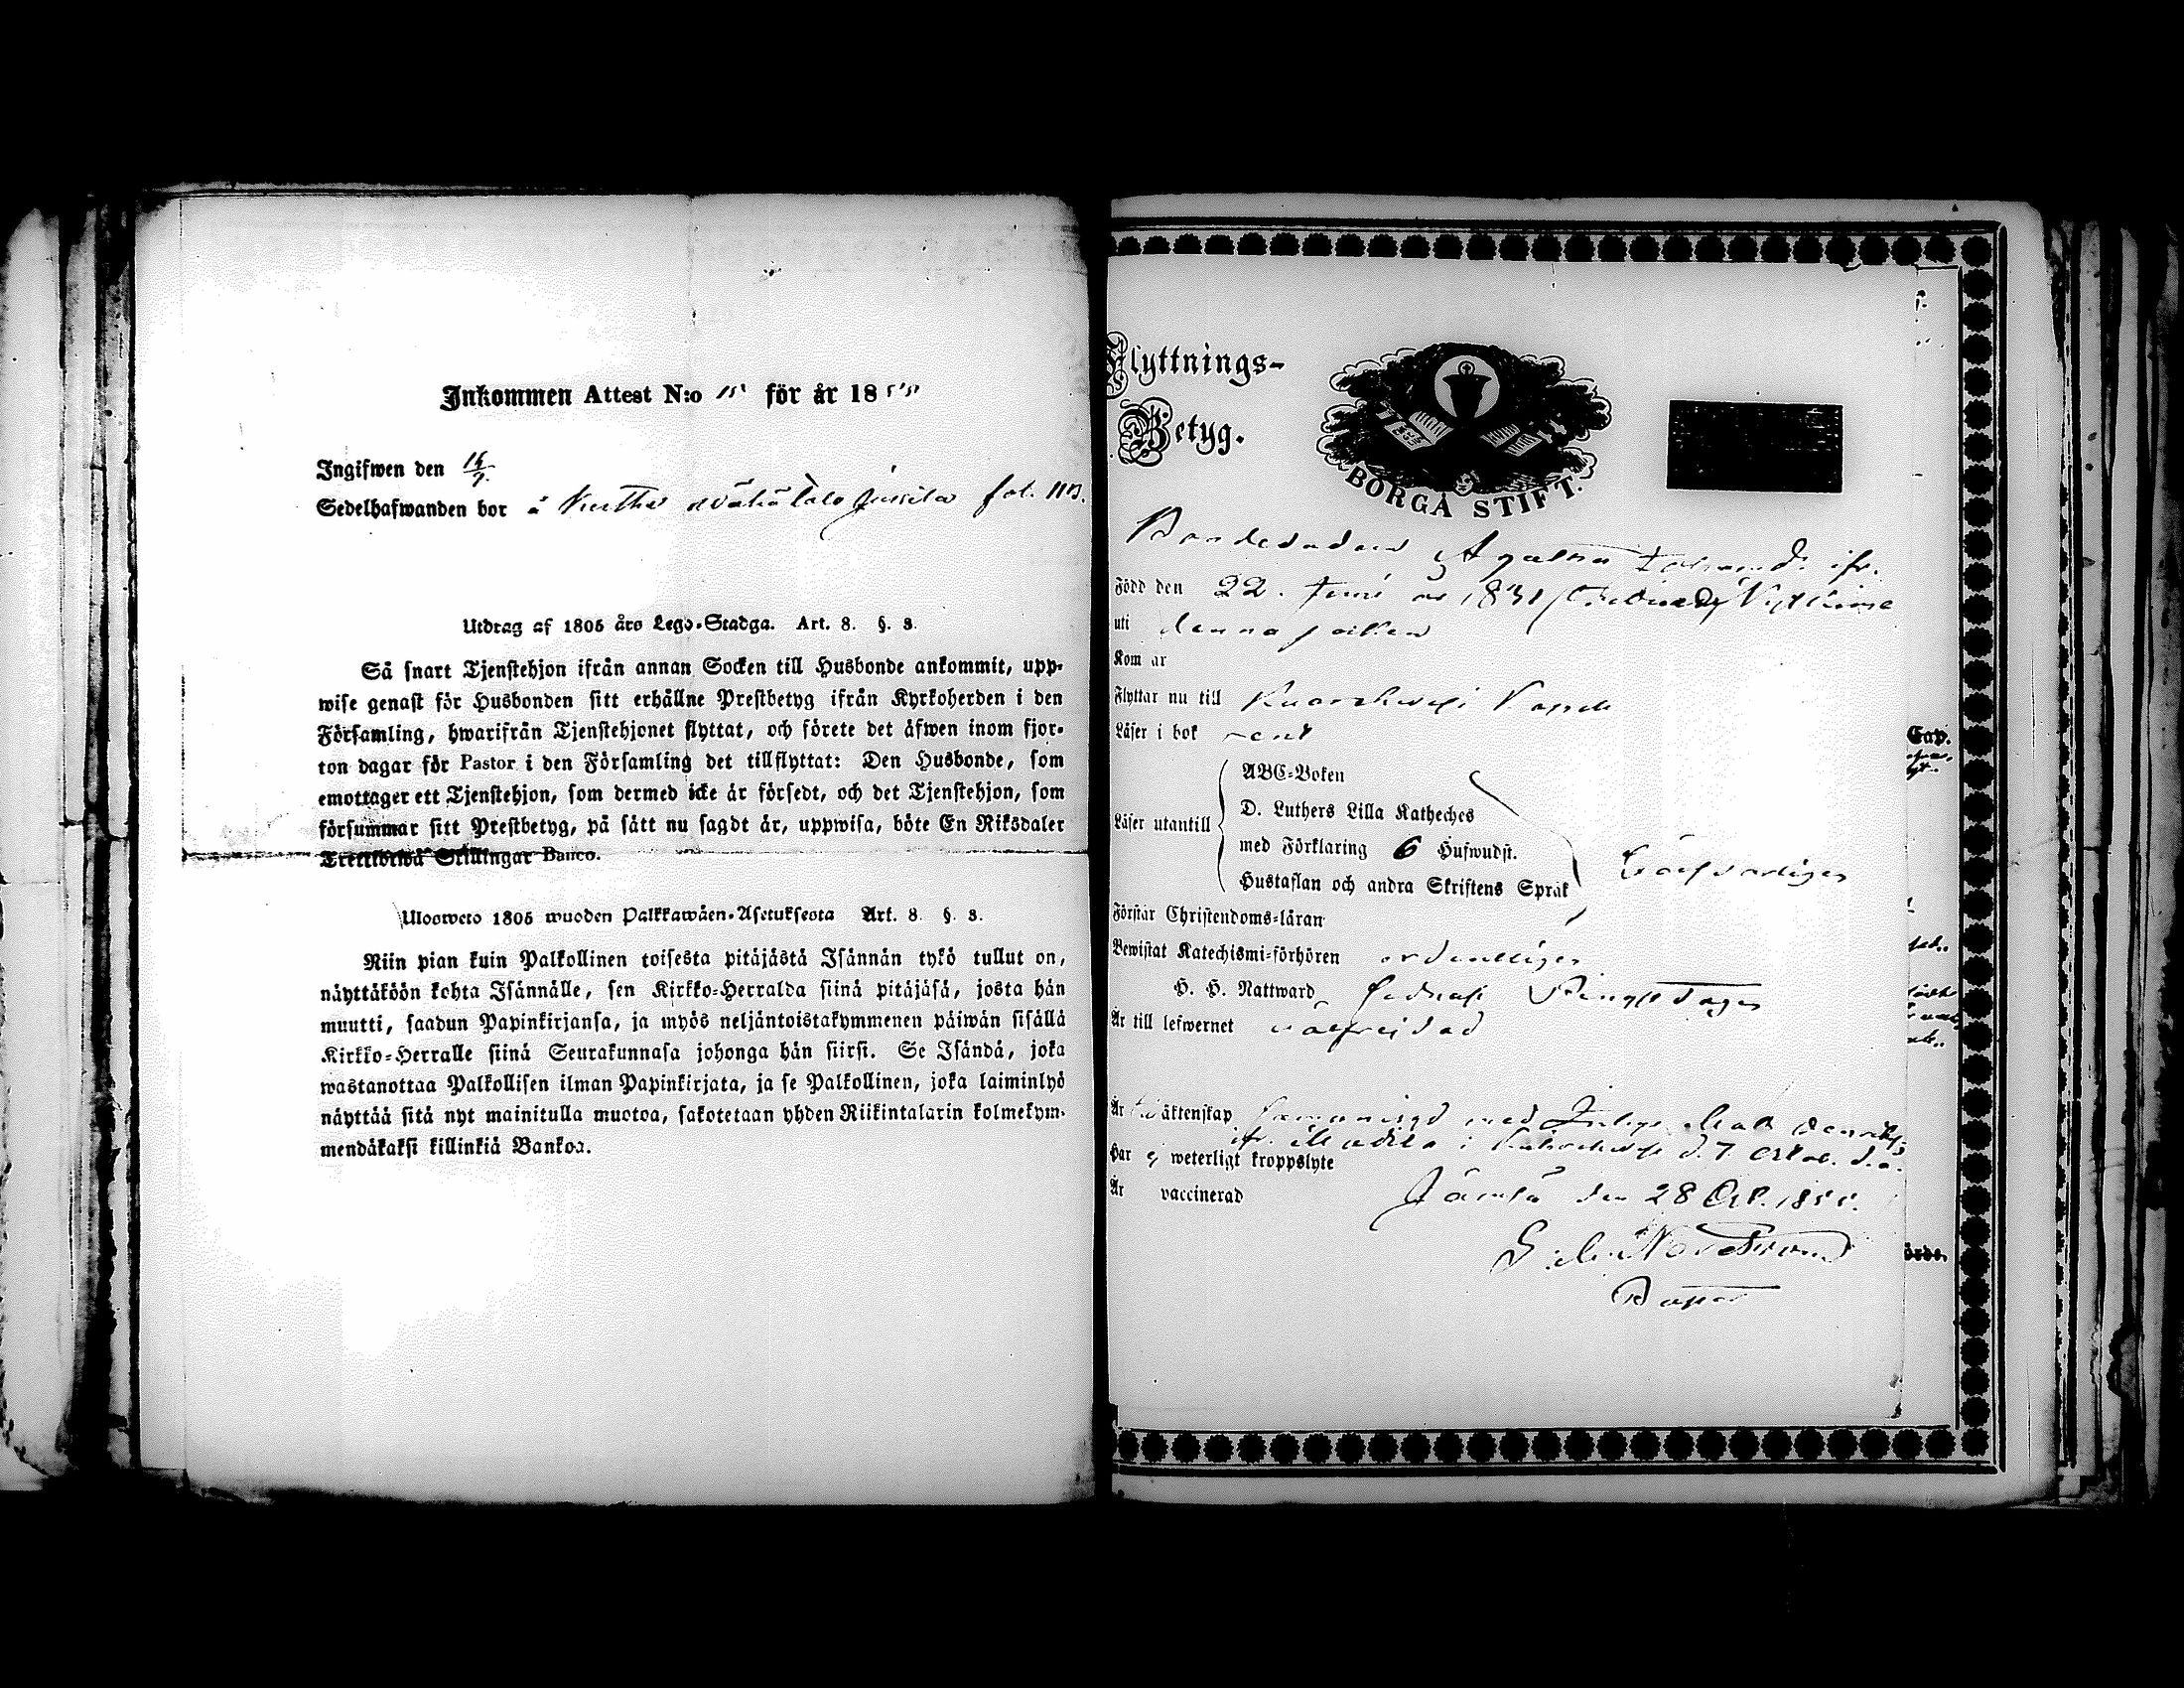 Inkommen Attest N:o 15 för år 1855
Ingifwen den
Sedelhafwanden bor å fol. 113.
Utdrag af 1805 års Lego-Stadga. Art. 8. §. 8.
Så snart Tjenstehjon ifrån annan Socken till Husbonde ankommit, upp-
wise genast för Husbonden sitt erhållne Prestbetyg ifrån Kyrkoherden i den
Församling, hwarifrån Tjenstehjonet flyttat, och förete det äfwen inom fjor-
ton dagar för Pastor i den Församling det tillflyttat: Den Husbonde, som
emottager ett Tjenstehjon, som dermed icke är försedt, och det Tjenstehjon, som
försummar sitt Prestbetyg, på sätt nu sagdt är, uppwisa, böte En Riksdaler
Trettiotwå Skillingar Banco.
Ulosweto 1805 wuoden Palkkawäen-Asetuksesta Art. 8. §. 8.
Niin pian kuin Palkollinen toisesta pitäjästä Isännän tykö tullut on,
näyttäköön kohta Isännälle, sen Kirkko-Herralda siinä pitäjäsä, josta hän
muutti, saadun Papinkirjansa, ja myös neljäntoistakymmenen päiwän sisällä
Kirkko-Herralle siinä Seurakunnasa johonga hän siirsi. Se Isändä, joka
wastanottaa Palkollisen ilman Papinkirjata, ja se Palkollinen, joka laiminlyö
näyttää sitä nyt mainitulla muotoa, sakotetaan yhden Riikintalarin kolmekym-
mendäkaksi killinkiä Bankoa.
Flyttnings-
Betyg.
BORGÅ STIFT.
Bondedodern Agatha Johansd. ifr.
Född den 22. Juni år 1831
uti denna socken
Kom år
Flyttar nu till Kuorehwesi Kapell
Läser i bok rent
Läser utantill
ABC-Boken
D. Luthers Lilla Katheches
med Förklaring 6 Hufwudst.
Hustaflan och andra Skriftens Språk
Förstår Christendoms-läran
Bewistat Katechismi-förhören ordentligen
H. H. Nattward sednast Pingst dagen
Är till lefwernet wälfrejdad
Är till äktenskap med Matts
ifr. i Kuorehwesi d. 7 Octob. d.å.
Har ej weterligt kroppslyte
Är vaccinerad
Jämsä den 28 Oct. 1855.
Nordstrand
Pastor